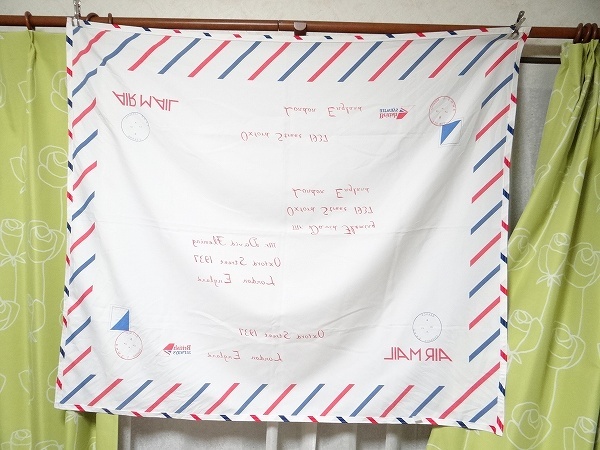 AIR MAIL
London England
British airways
Oxford Street 1937
London England
Oxford Street 1937
Mr David Fleming
Mr David Fleming
Oxford Street 1937
London England
Oxford Street 1937
British airways
London England
AIR MAIL